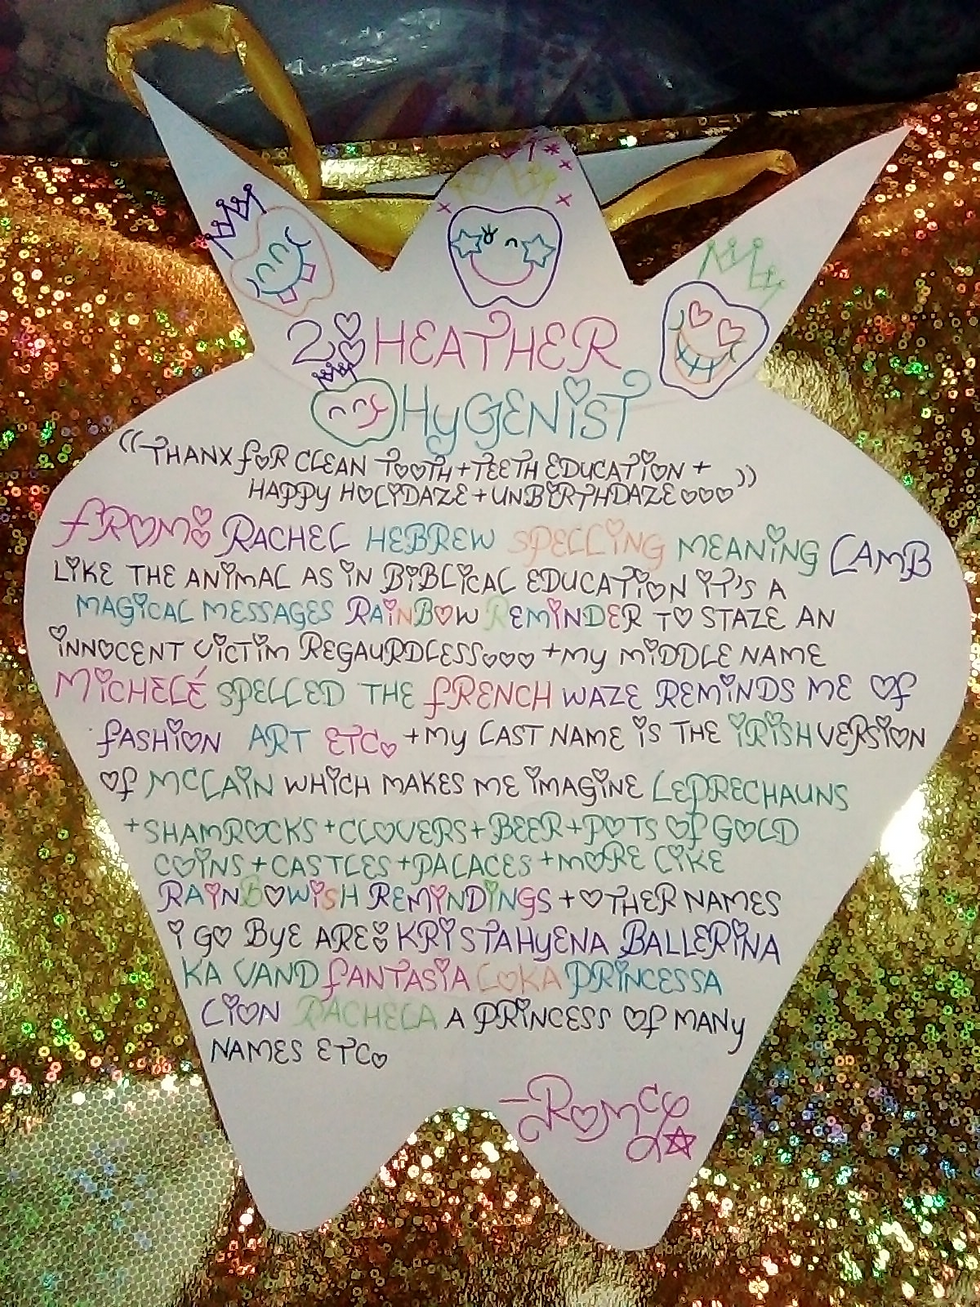 2 HEATHER
HYGENIST
"THANX FOR CLEAN TOOTH + TEETH EDUCATION +
HAPPY HOLIDAZE + UNBIRTHDAZE♡♡♡"
FROM: RACHEL HEBREW SPELLING MEANING LAMB
LIKE THE ANIMAL AS IN BIBLICAL EDUCATION IT'S A
MAGICAL MESSAGES RAINBOW REMINDER TO STAZE AN
INNOCENT VICTIM REGAURDLESS♡♡♡ + MY MIDDLE NAME
MICHELÉ SPELLED THE FRENCH WAZE REMINDS ME OF
FASHION ART ETC♡ + MY LAST NAME IS THE IRISH VERSION
OF MCLAIN WHICH MAKES ME IMAGINE LEPRECHAUNS
+ SHAMROCKS + CLOVERS + BEER + POTS OF GOLD
COINS + CASTLES + PALACES + MORE LIKE
RAINBOWISH REMINDINGS + OTHER NAMES
I GO BYE ARE: KRISTAHYENA BALLERINA
KA VAND FANTASIA LOKA PRINCESSA
LION RACHELA A PRINCESS OF MANY
NAMES ETC♡